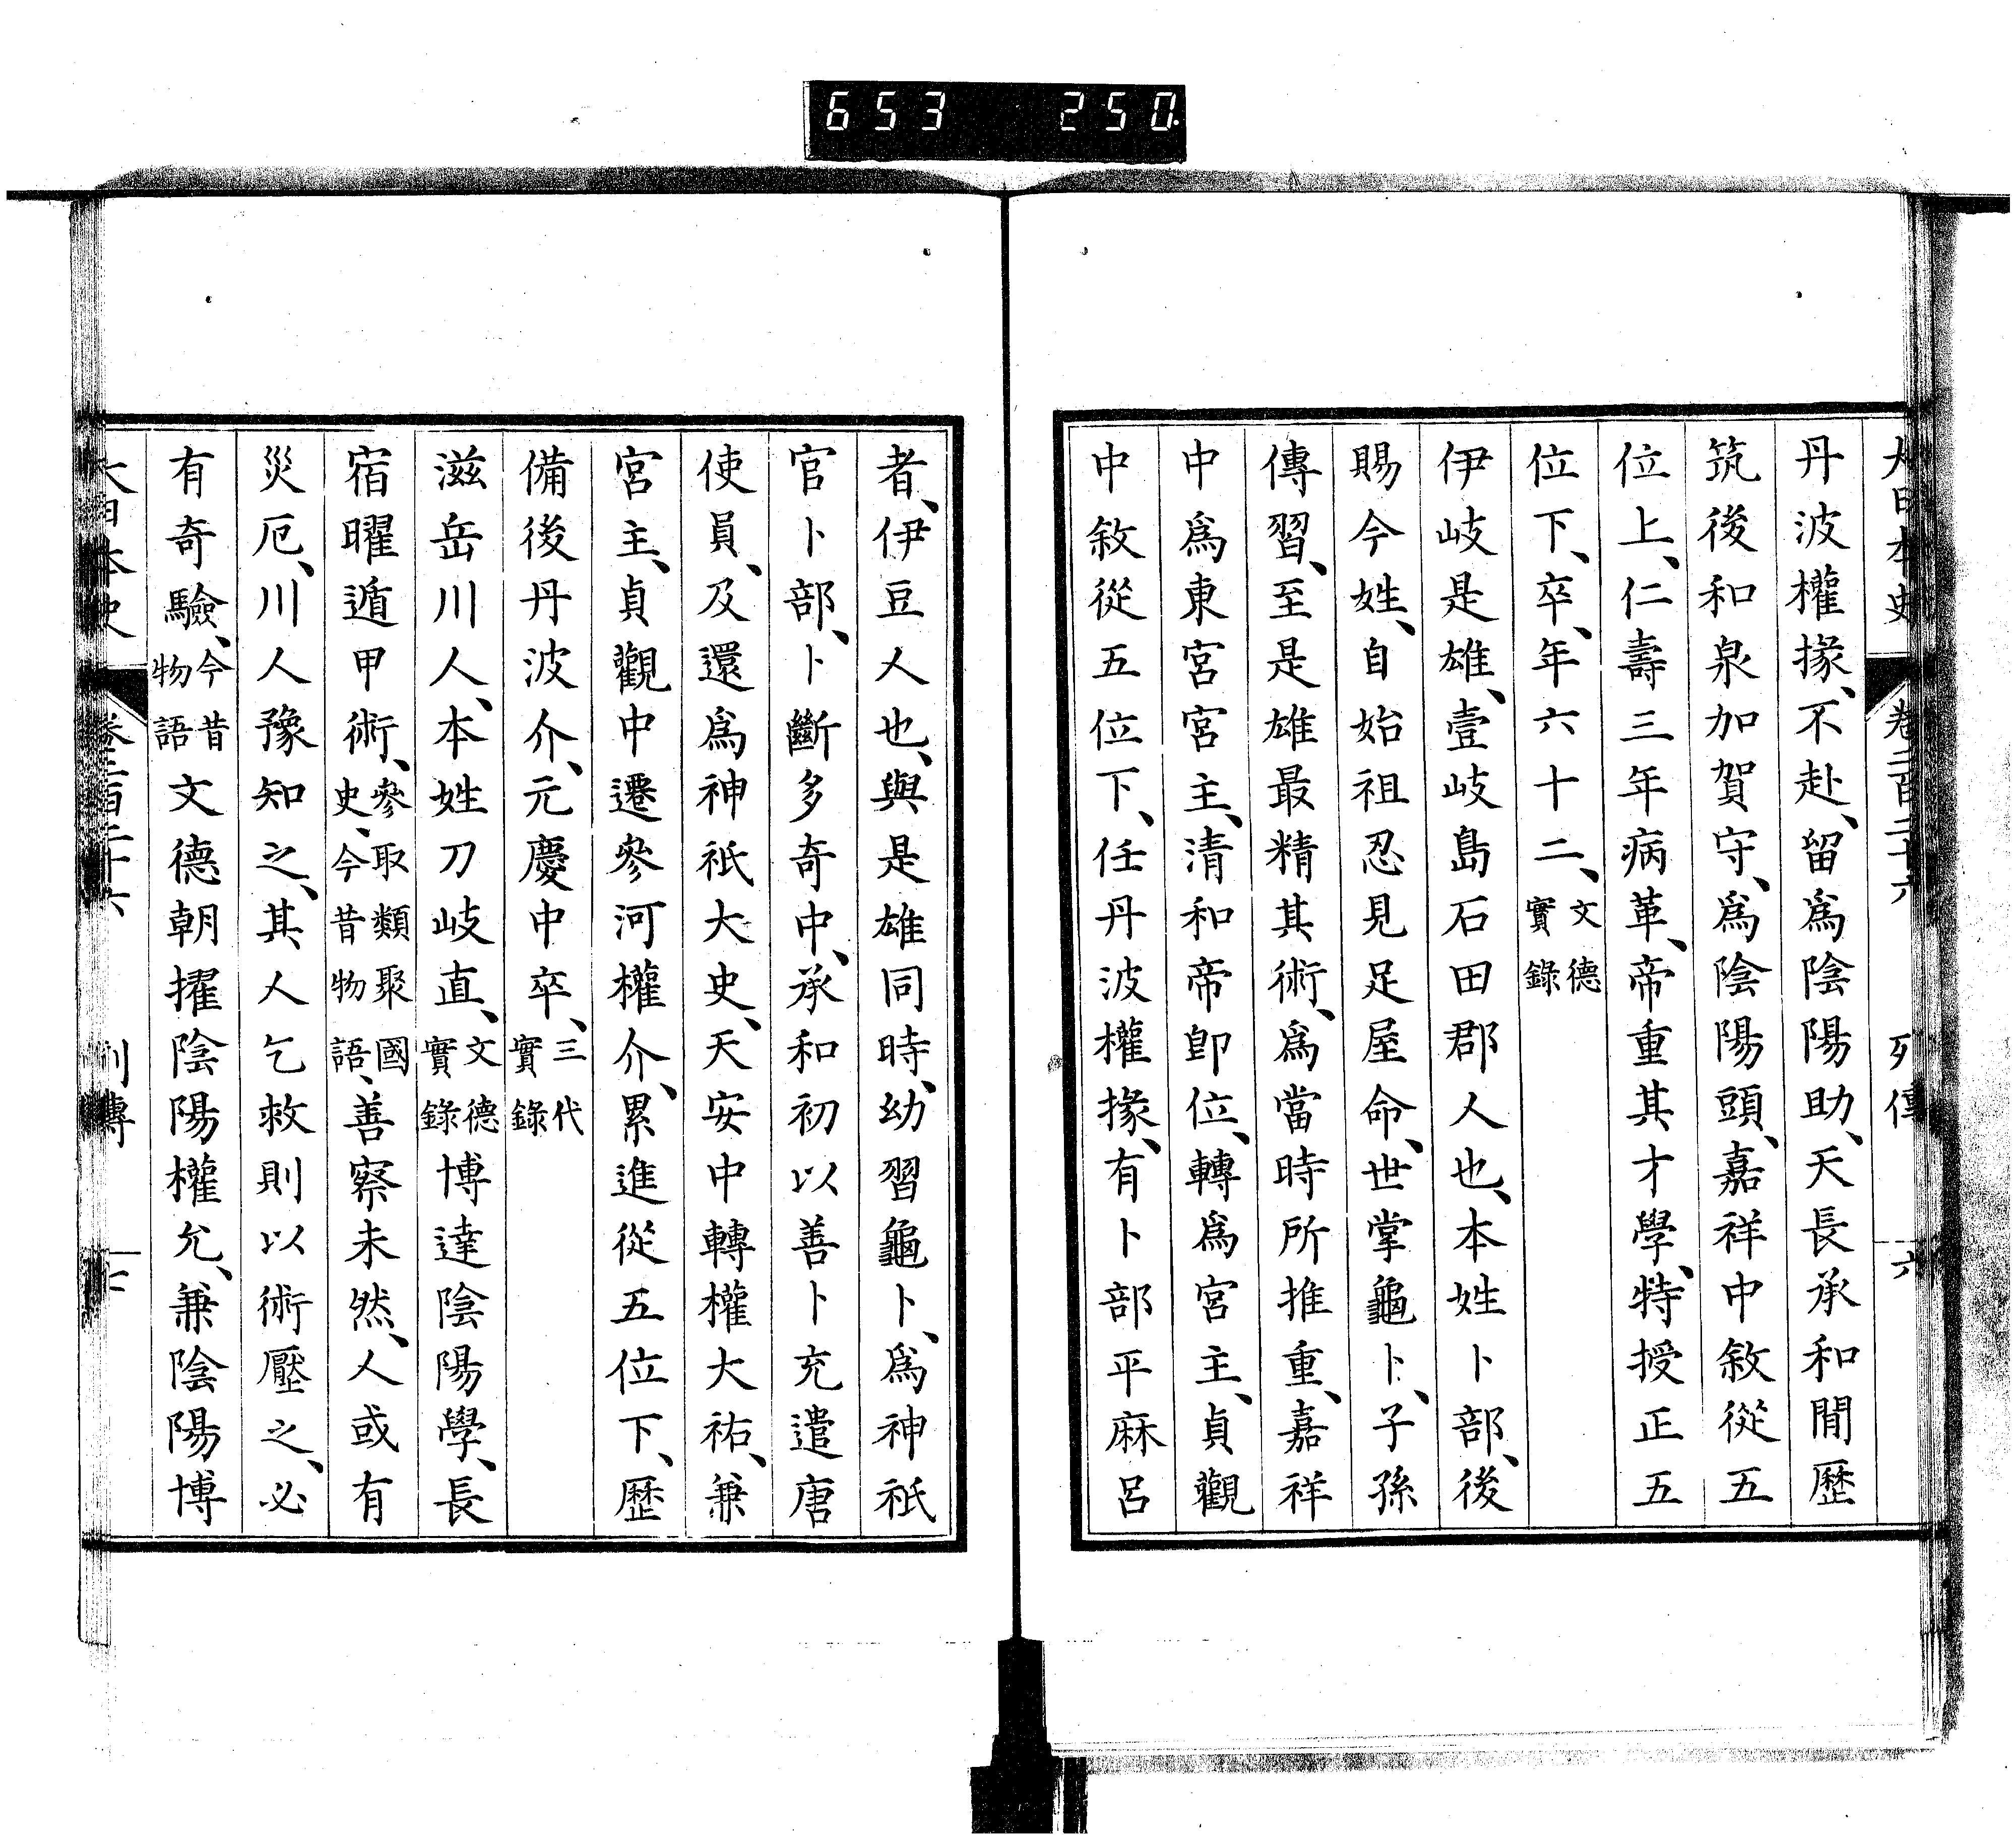 653 250
大日本史 卷二百二十六 列傳 六
丹波權掾、不赴、留爲陰陽助、天長承和閒歷
筑後和泉加賀守、爲陰陽頭、嘉祥中敘從五
位上、仁壽三年病革、帝重其才學、特授正五
位下、卒、年六十二、文德實錄
伊岐是雄、壹岐島石田郡人也、本姓卜部、後
賜今姓、自始祖忍見足屋命、世掌龜卜、子孫
傳習、至是雄最精其術、爲當時所推重、嘉祥
中爲東宮宮主、清和帝卽位、轉爲宮主、貞觀
中敘從五位下、任丹波權掾、有卜部平麻呂
者、伊豆人也、與是雄同時、幼習龜卜、爲神祇
官卜部、卜斷多奇中、承和初以善卜充遣唐
使員、及還爲神祇大史、天安中轉權大祐、兼
宮主、貞觀中遷參河權介、累進從五位下、歷
備後丹波介、元慶中卒、三代實錄
滋岳川人、本姓刀岐直、文德實錄博達陰陽學、長
宿曜遁甲術、參取類聚國史、今昔物語、善察未然、人或有
災厄、川人豫知之、其人乞救則以術壓之、必
有奇驗、今昔物語文德朝擢陰陽權允、兼陰陽博
大日本史 卷二百二十六 列傳 七